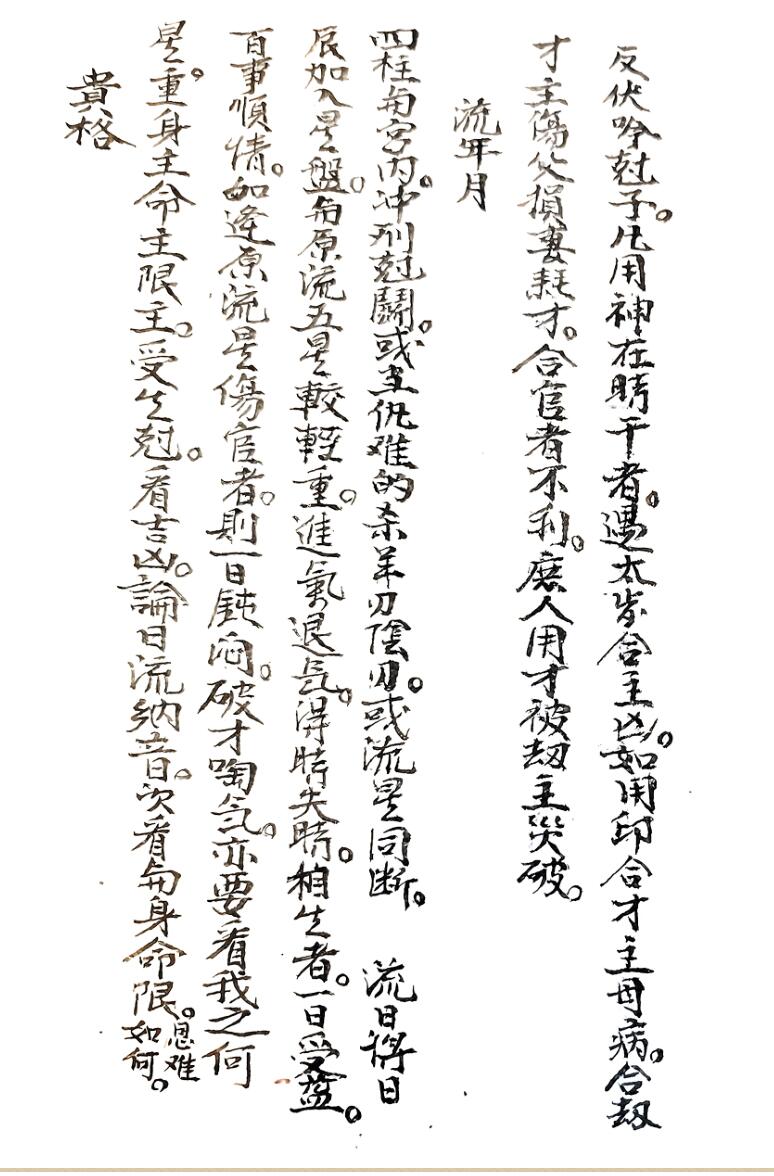 反伏吟尅子。凡用神在時干者。遇太岁合主凶。如用印合才主母病。合刼
才主傷父損妻耗才。合官者不利。庶人用才被刼主災破。
流年月
四柱与宮内。冲刑尅鬪。或主仇难的杀羊刃陰刃。或流星同断。 流日將日
辰加入星盤。与原流五星較輕重。進氣退气。得時失時。相生者。一日受益。
百事順情。如逢原流星傷官者。則一日鈍闷。破才啕气。亦要看我之何
星。重身主命主限主。受生尅。看吉凶。論日流纳音。次看与身命限。恩难
如何。
貴格